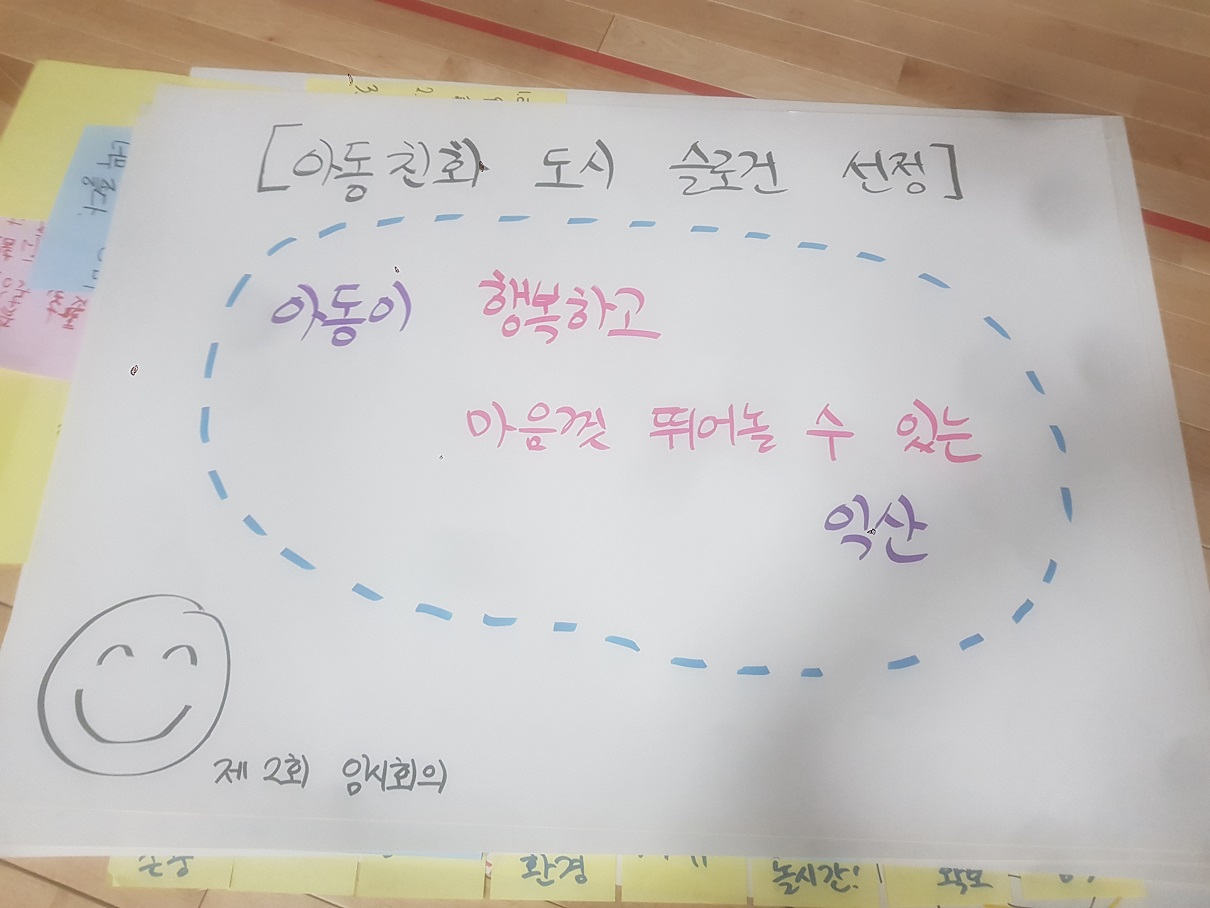 [아동친화 도시 슬로건 선정]
아동이 행복하고
마음껏 뛰어놀 수 있는
익산
제 2회 임시회의
환경
놀시간!